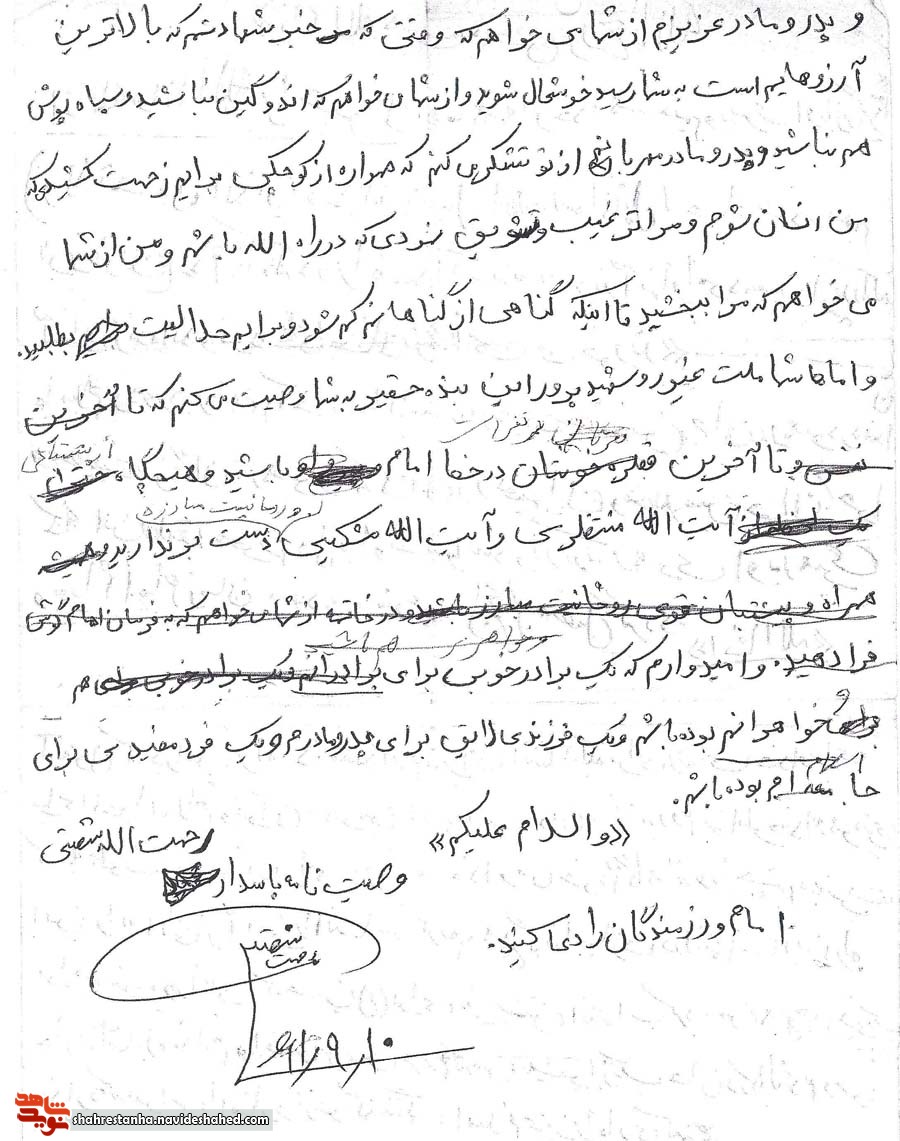 و پدر و مادر عزیزم از شما می خواهم که وقتی که خبر شهادتم که بالاترین
آرزوهایم است به شما رسید خوشحال شوید و از شما می خواهم که اندوگین نباشید و سیاه پوش
هم نباشید و پدر و مادر مهربانم از تو تشکر می کنم که همواره از کوچکی برایم زحمت کشیدی که
من انسان شوم و مرا ترغیب و تشویق نمودی که در راه الله باشم و من از شما
می خواهم که مرا ببخشید تا اینکه گناهی از گناهانم کم شود و برایم حلالیت بطلبید.
و اما شما ملت غیور و شهید پرور این بنده حقیر به شما وصیت می کنم که تا آخرین
قطره خونتان
نفس و تا آخرین در خط امام و باشید و هیچگاه
و روحانیت مبارزه
از آیت الله منتظری و آیت الله مشکینی دست برندارید و همیشه
همراه و پشتیبان قوی روحانیت مبارز باشید و در خاتمه از شما می خواهم که به فرمان امام گوش
فرا دهید. و امیدوارم که یک برادر خوبی برای برادرانم و یک برادر خوبی برای هم
خواهرانم بوده باشم و یک فرزندی لایق برای پدر و مادرم و یک فرد مفیدی برای
اسلام
جامعه ام بوده باشم.
«والسلام علیکم»
رحمت الله شفتی
وصیت نامه پاسدار
امام و رزمندگان را دعا کنید.
۶۱/۹/۱۰
نوید شاهد
shahrestanha.navideshahed.com